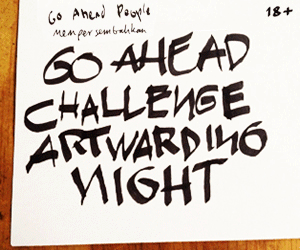 Go Ahead People
mempersembahkan
18+
GO AHEAD
CHALLENGE
ARTWARDING
NIGHT